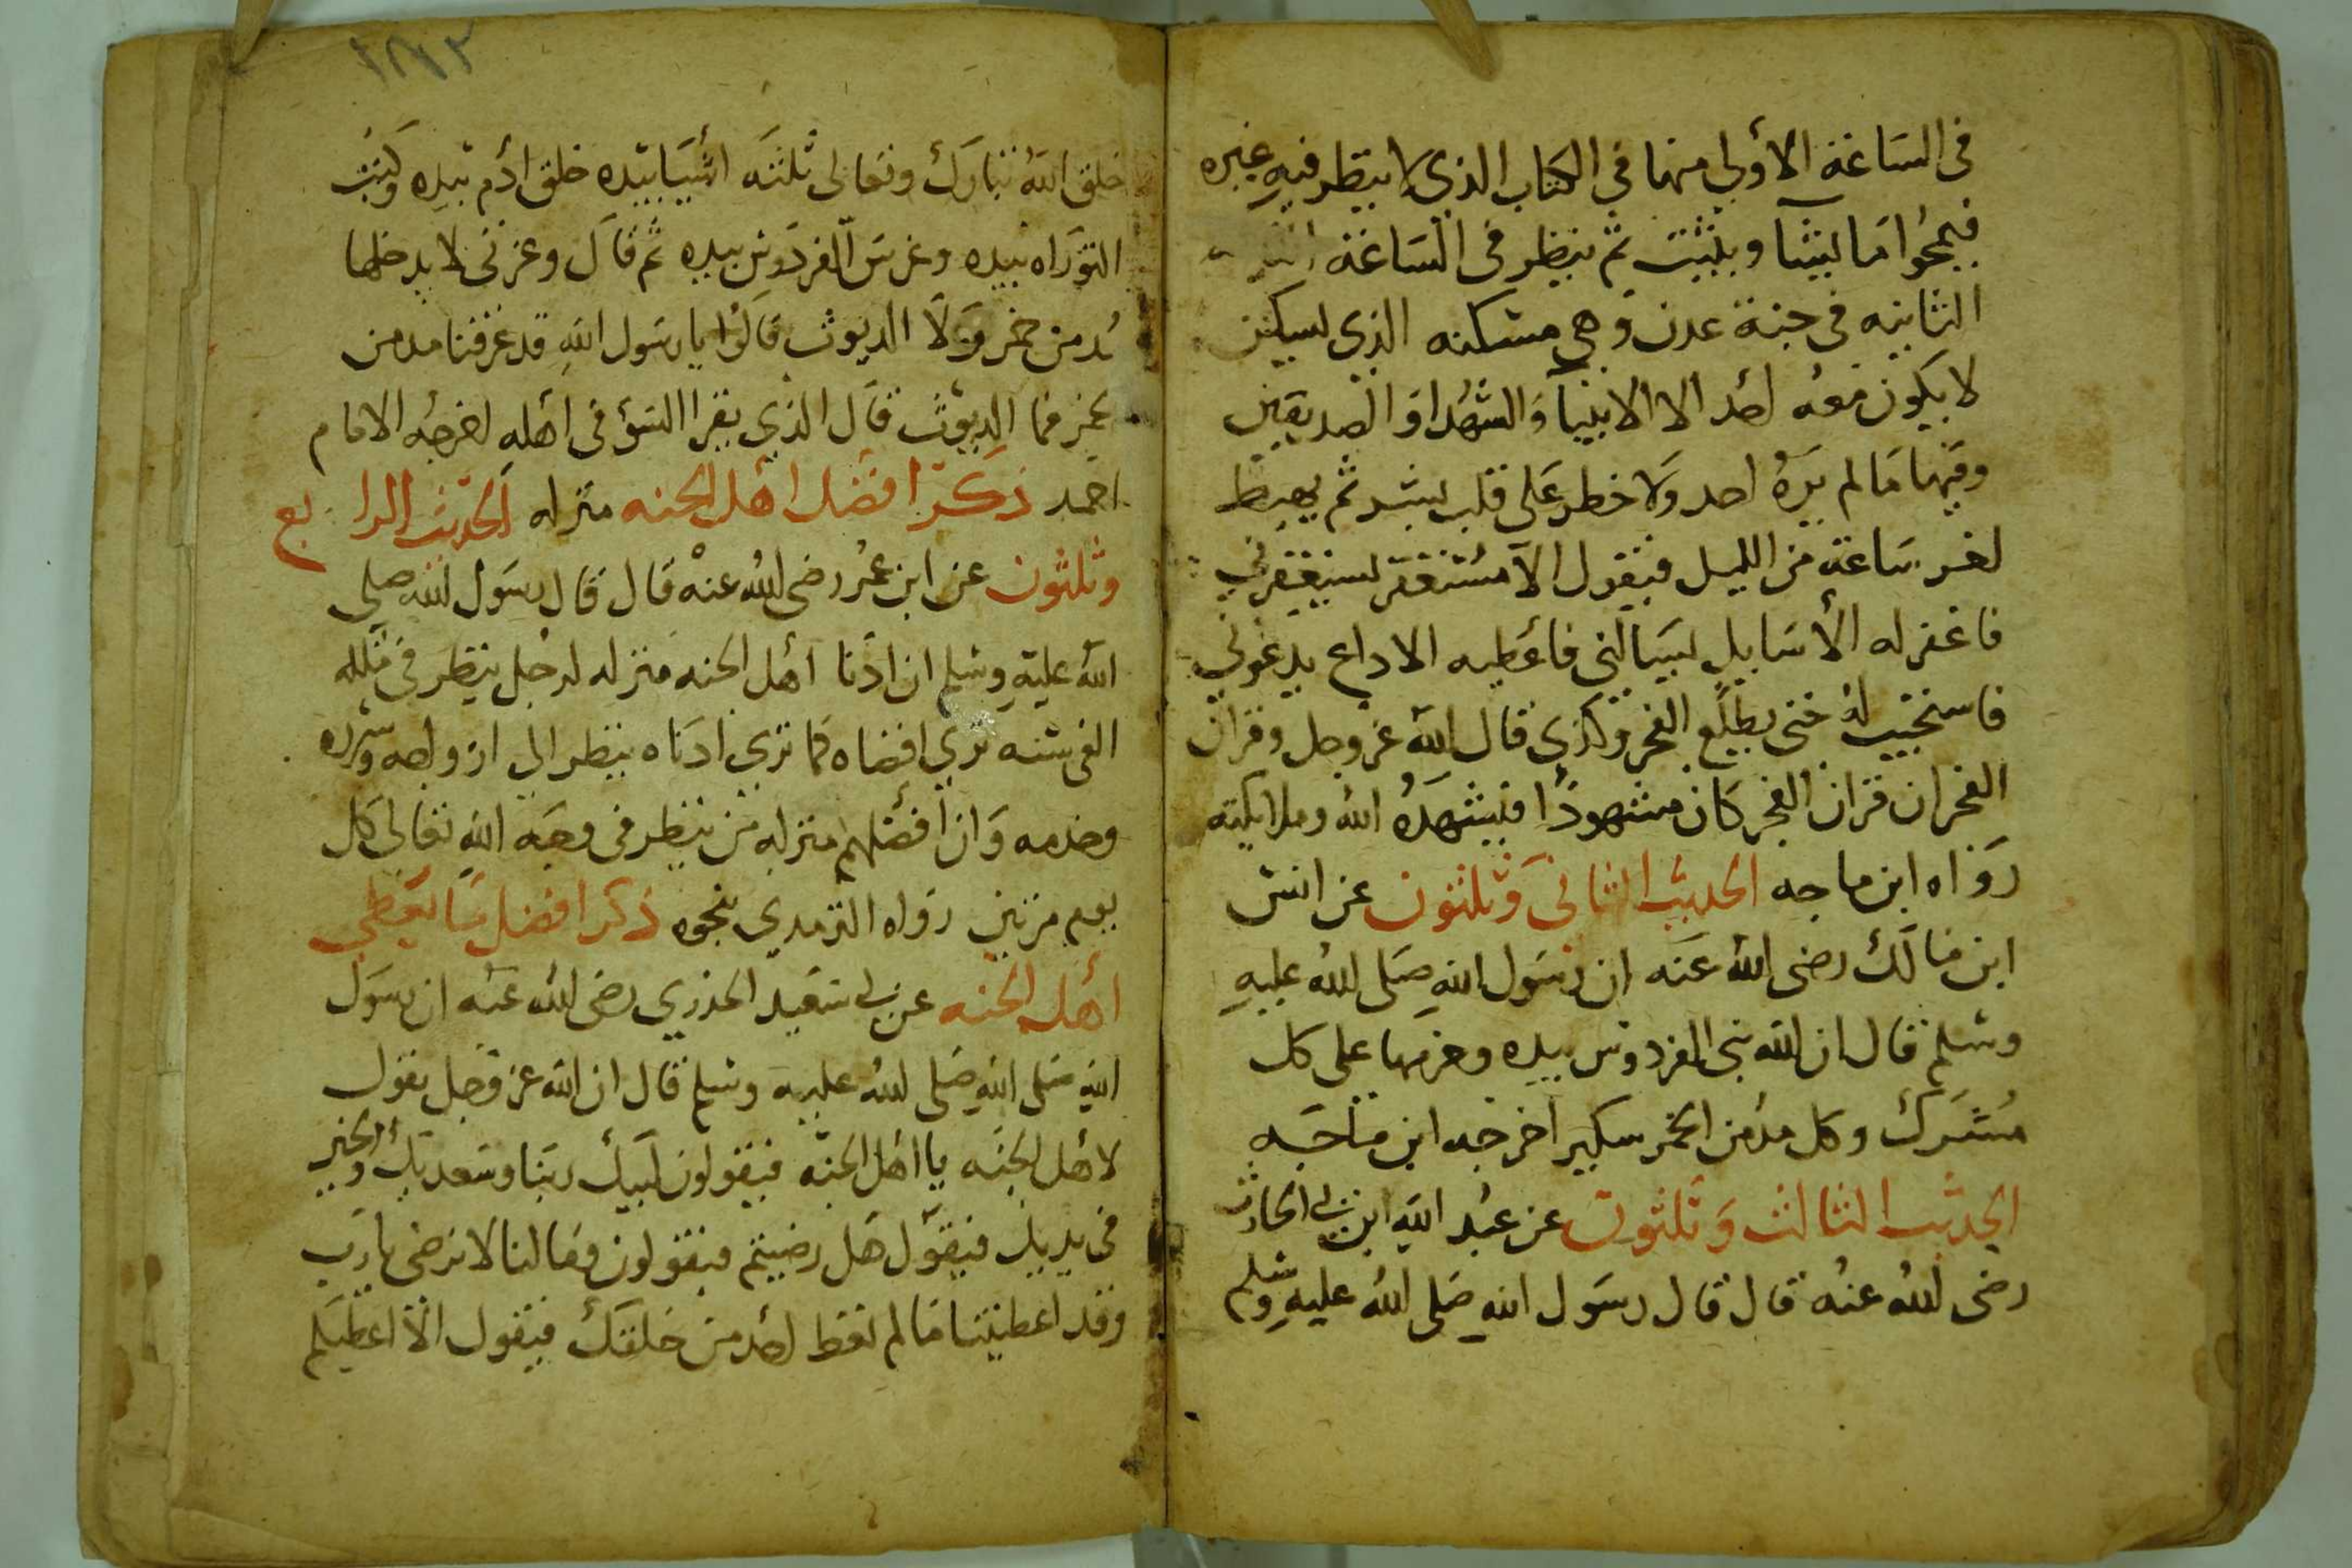 في الساعة الأولى منها في الكتاب الذي لا ينظر فيه غيره
فيمحوا ما يشآ ويثبت ثم ينظر في الساعة
الثانيه في جنة عدن وهي مسكنه الذي يسكن
لا يكون معه احد الا الانبيآ والشهدا والصديقين
وفيها ما لم يره احد ولا خطر على قلب بشر ثم يهبط
اخر ساعة من الليل فيقول الآ مستغفر يستغفرني
فاغفر له الأ سايل يسالني فأعطيه الا داع يدعوني
فاستجيب له حتى يطلع الفجر وكذى قال الله عز وجل وقران
الفجر ان قران الفجر كان مشهودًا فيشهده الله وملايكته
رواه ابن ماجه الحديث الثاني وثلثون عن انس
ابن مالك رضى الله عنه ان رسول الله صلى الله عليه
وسلم قال ان الله بنى الفردوس بيده وحرمها على كل
مشرك وكل مدمن الخمر سكير اخرجه ابن ماجه
الحديث الثالث وثلثون عن عبد الله ابن ابي الحارث
رضى الله عنه قال قال رسول الله صلى الله عليه وسلم
١٨٧٢
خلق الله تبارك وتعالى ثلثه أشيا بيده خلق ادم بيده وكتب
التوراه بيده وغرس الفردوس بيده ثم قال وعزتى لا يدخلها
مدمن خمر ولا الديوث قالوا يا رسول الله قد عرفنا مدمن
خمر فما الديوث قال الذي يقر السؤ في أهله اخرجه الامام
احمد ذكر افضل اهل الجنه منزله الحديث الرا بع
وثلثون عن ابن عمر رضى الله عنه قال قال رسول الله صلى
الله عليه وسلم ان ادنا أهل الجنه منزله لرجل ينظر في ملكه
الفى سنه يرى اقصاه كما يرى ادناه ينظر الى ازواجه وسرره
وخدمه وان أفضلهم منزله من ينظر في وجه الله تعالى كل
يوم مرتين رواه الترمدي بنحوه ذكر افضل ما يعطى
أهل الجنه عن ابي سعيد الخدري رضى الله عنه ان رسول
الله صلى الله صلى الله عليه وسلم قال ان الله عز وجل يقول
لاهل الجنه يا اهل الجنه فيقولون لبيك ربنا وسعديك والخير
في يديك فيقول هل رضيتم فيقولون وما لنا لا نرضى يا رب
وقد اعطيتنا ما لم تعط احد من خلقك فيقول الآ اعطيكم